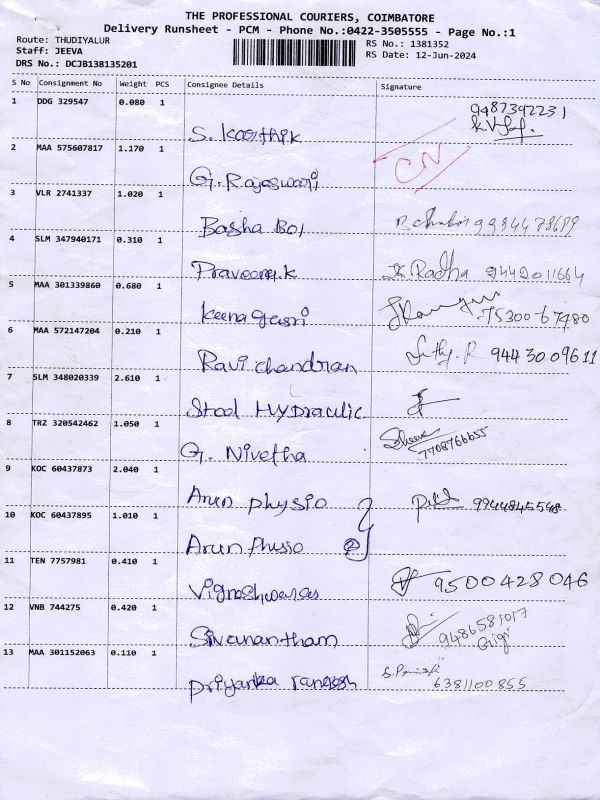 THE PROFESSIONAL COURIERS, COIMBATORE
Delivery Runsheet - PCM - Phone No.:0422-3505555 - Page No.:1
Route: THUDIYALUR
RS No.: 1381352
Staff: JEEVA
RS Date: 12-Jun-2024
DRS No.: DCJB138135201
S No Consignment No Weight PCS Consignee Details Signature
1 DDG 329547 0.080 1 S. Karthik 9487392231
2 MAA 575607817 1.170 1 G. Rajeswari CN
3 VLR 2741337 1.020 1 Basha Boi
4 SLM 347940171 0.310 1 Praveena.k K Radha 9442011664
5 MAA 301339860 0.680 1 75300-67480
6 MAA 572147204 0.210 1 Ravi chandran 9443009611
7 SLM 348020339 2.610 1 Hydraulic
8 TRZ 320542462 1.050 1 G. Nivetha 7708766655
9 KOC 60437873 2.040 1 Arun physio 9944845548
10 KOC 60437895 1.010 1 Arun 2
11 TEN 7757981 0.410 1 Vigneshwaran 9500428046
12 VNB 744275 0.420 1 Sivanantham 9486581017
13 MAA 301152063 0.110 1 Priyanka 6381100855